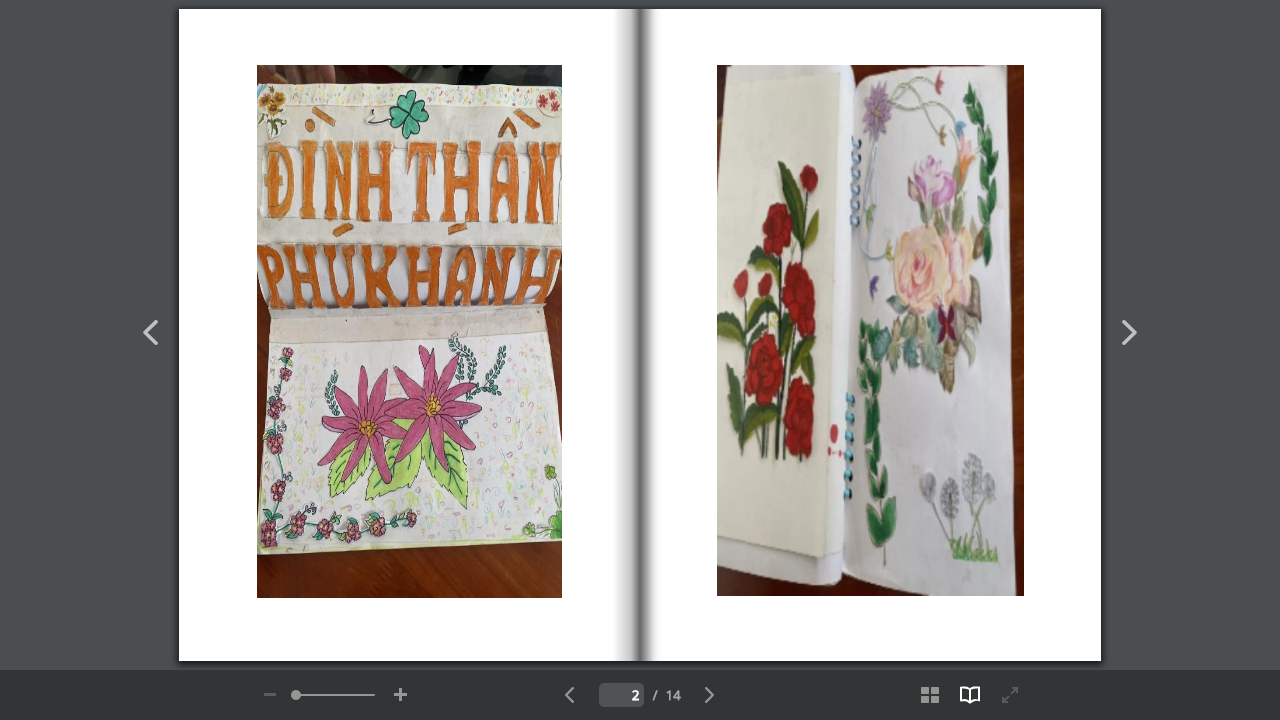 ĐÌNH THẦN
PHÚ KHÁNH
2 / 14